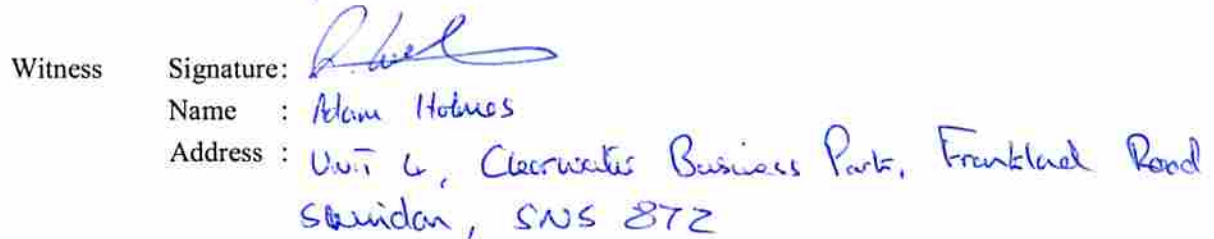 Witness Signature:
Name : Adam Holmes
Address : Unit 4, Clearwater Business Park, Frankland Road
Swindon, SN5 8YZ